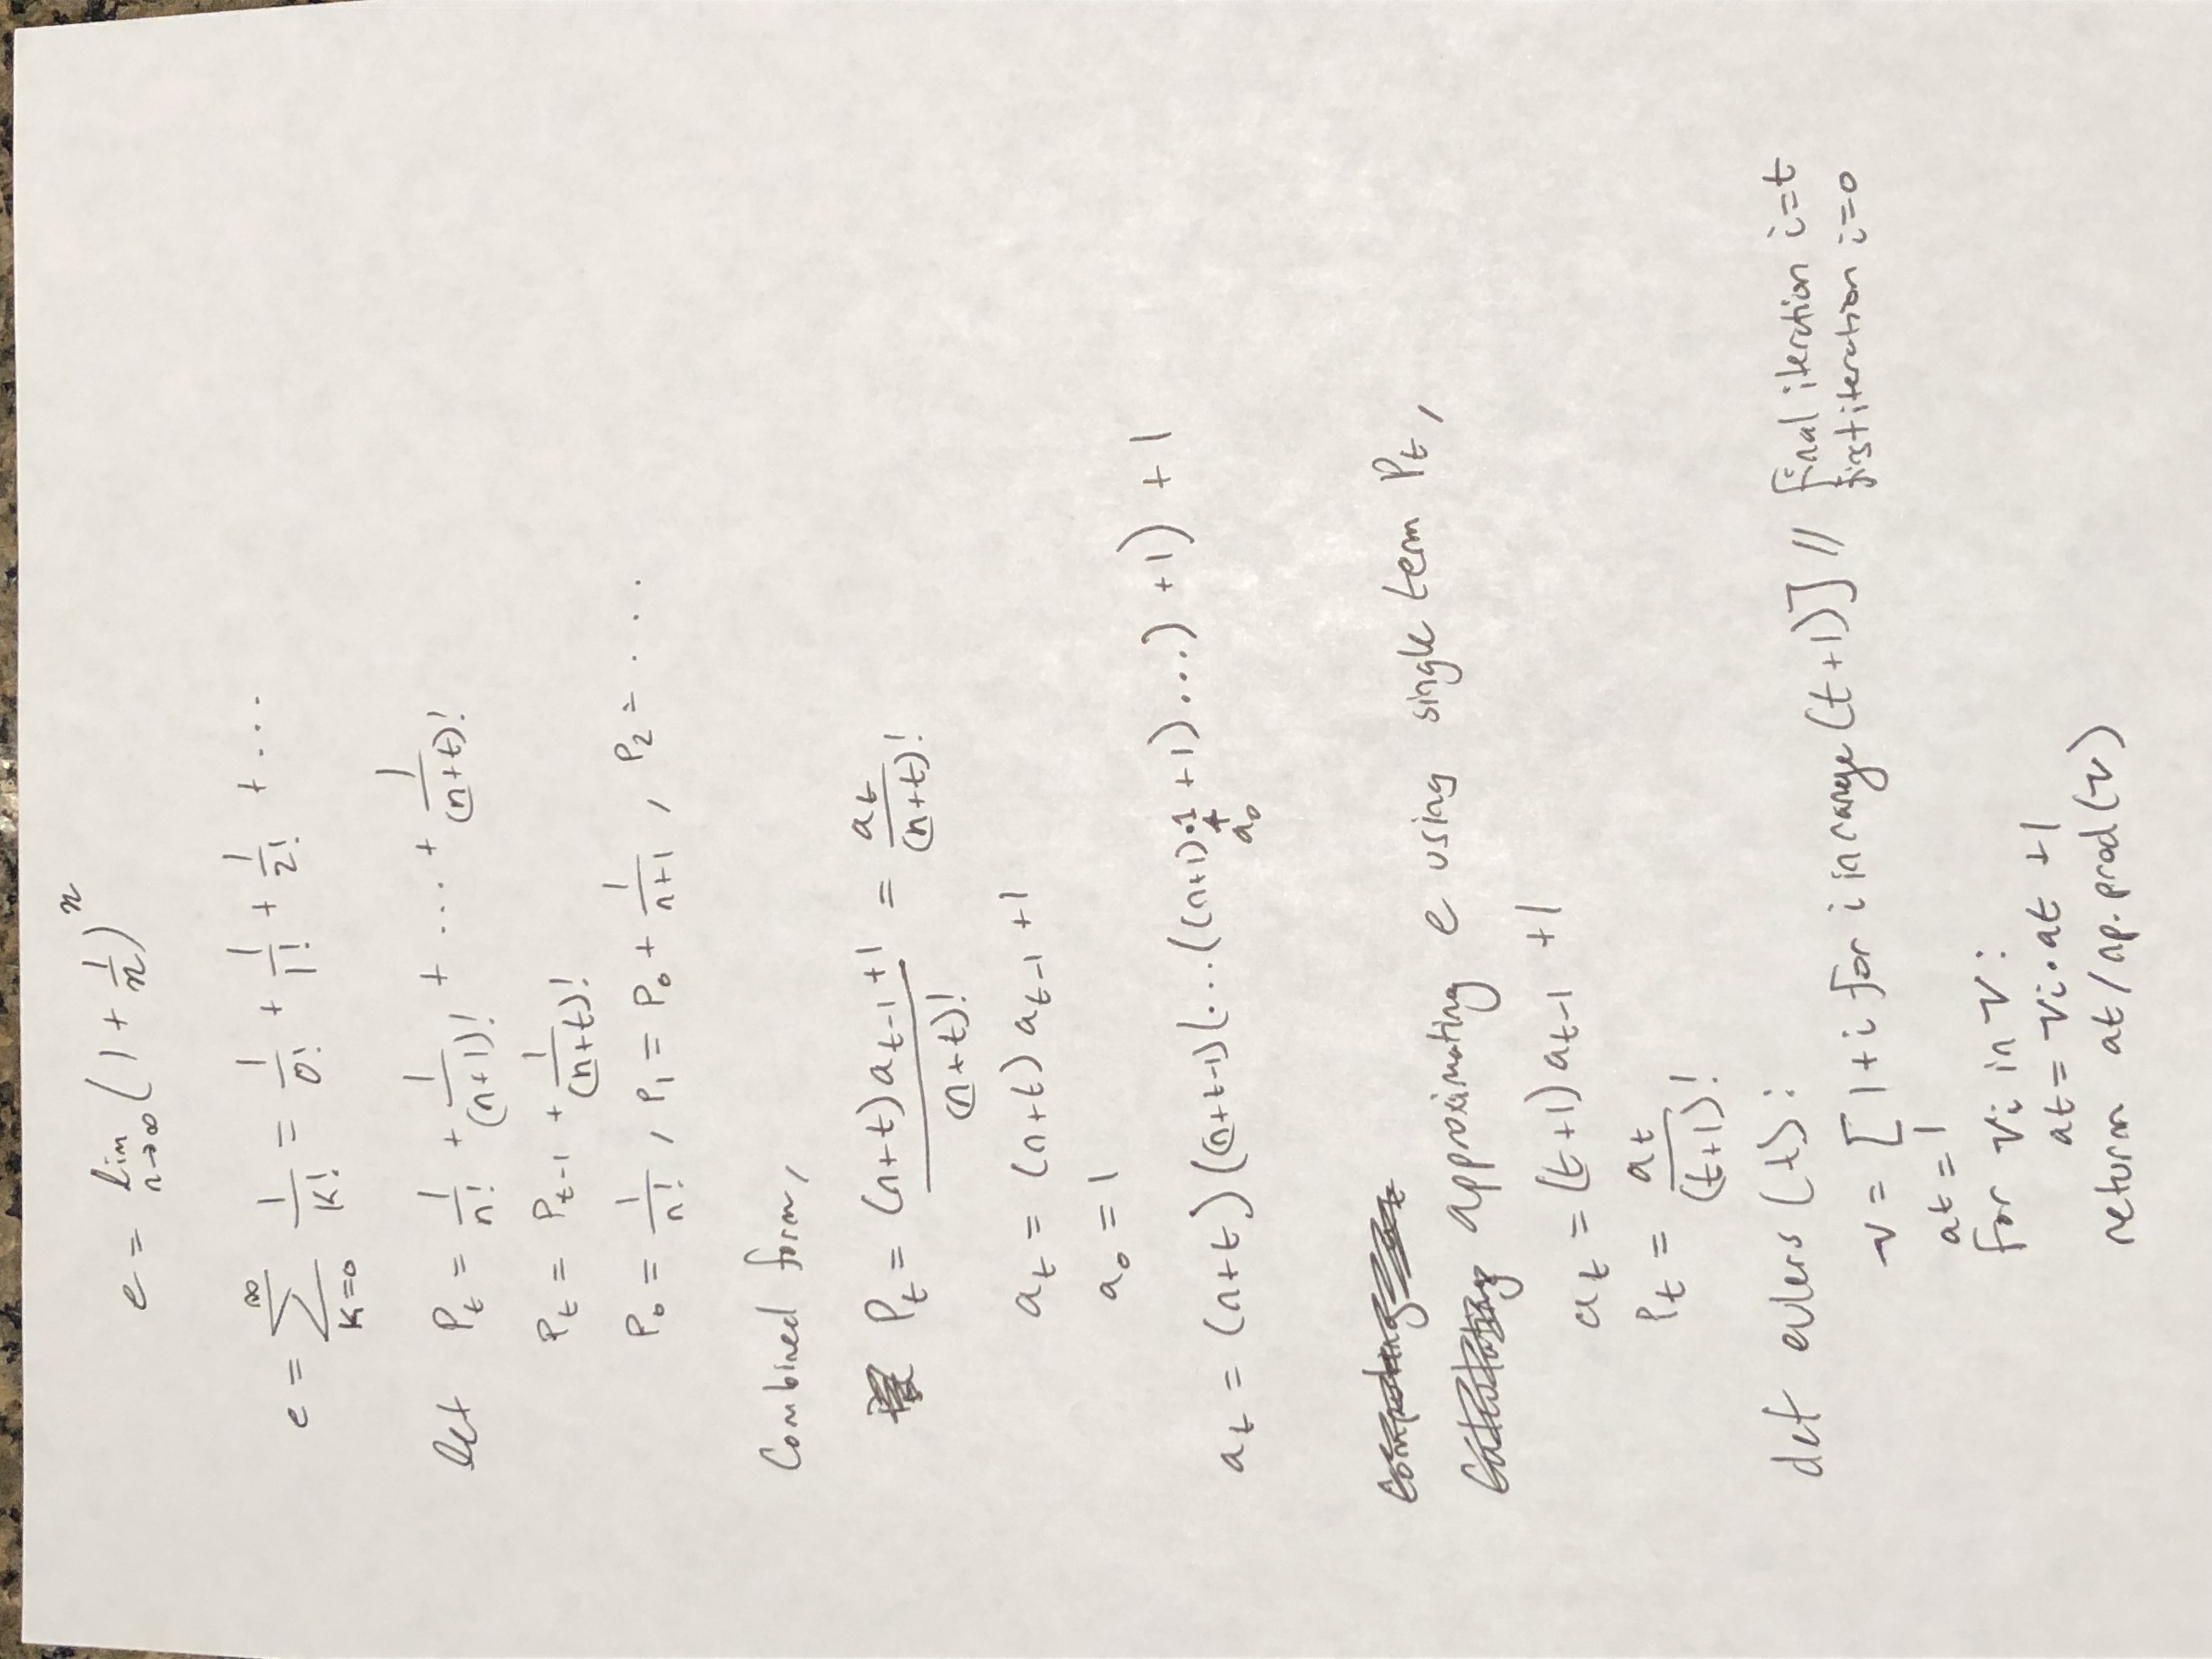 e = lim n→∞ (1 + 1/n)^n
e = ∑ K=0 ∞ 1/K! = 1/0! + 1/1! + 1/2! + ...
let P_t = 1/n! + 1/(n+1)! + ... + 1/(n+t)!
P_t = P_t-1 + 1/(n+t)!
P_0 = 1/n! , P_1 = P_0 + 1/n+1 , P_2 = ....
Combined form,
P_t = (n+t)a_t-1 +1/(n+t)! = a_t/(n+t)!
a_t = (n+t) a_t-1 +1
a_0 = 1
a_t = (n+t)((n+t-1)(...((n+1)·1 +1)...) +1) + 1
↑
a_0
Computing
Calculating approximating e using single term P_t,
a_t = (t+1) a_t-1 +1
P_t = a_t/(t+1)!
def eulers (t):
v = [1+i for i in range(t+1)] // final iteration i=t
first iteration i=0
at = 1
for vi in v:
at = vi·at +1
return at/np.prod(v)